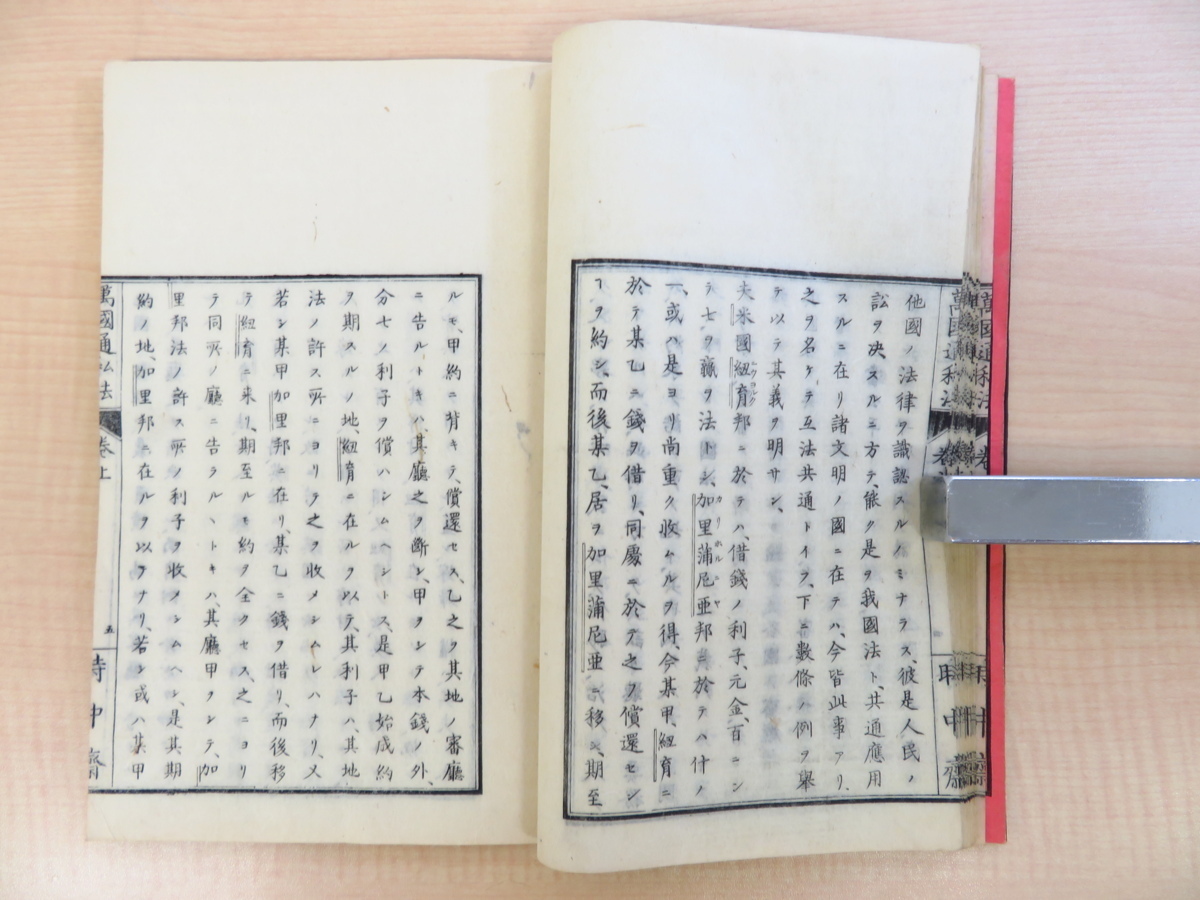 他國ノ法律ヲ識認スルノミナラス、彼是人民ノ
訟ヲ决スルニ方テ、能ク是ヲ我國法ト、共通應用
スルニ在リ諸文明ノ國ニ在テハ、今皆此事アリ、
之ヲ名ケテ互法共通トイフ、下ニ數條ノ例ヲ舉
テ以テ其義ヲ明サン、
夫米國紐育邦ニ於テハ、借錢ノ利子、元金、百ニシ
テ七ヲ贏ヲ法トシ、加里蒲尼亜邦ニ於テハ什ノ
一、或ハ是ヨリ尚重ク收ムルヲ得、今某甲、紐育ニ
於テ某乙ニ錢ヲ借リ、同處ニ於テ之ヲ償還セン
ヿヲ約シ、而後某乙、居ヲ加里蒲尼亜ニ移シ、期至
ルモ、甲約ニ背キテ、償還セス、乙之ヲ其地ノ審廳
ニ告ルトキハ、其廳之ヲ斷シ、甲ヲシテ本錢ノ外、
分七ノ利子ヲ償ハシムヘシトス、是甲乙始成約
ヲ期スルノ地、紐育ニ在ルヲ以テ、其利子ハ、其地
法ノ許ス所ニヨリテ之ヲ收メシムレハナリ、又
若シ某甲加里邦ニ在リ、某乙ニ錢ヲ借リ、而後移
テ紐育ニ来リ、期至ルモ約ヲ全クセス、之ニヨリ
テ同所ノ廳ニ告ラルヽトキハ、其廳甲ヲシテ、加
里邦法ノ許ス所ノ利子ヲ收メシムヘシ、是其期
約ノ地、加里邦ニ在ルヲ以テナリ、若シ或ハ某甲
萬國通私法
卷上
五
時中齋